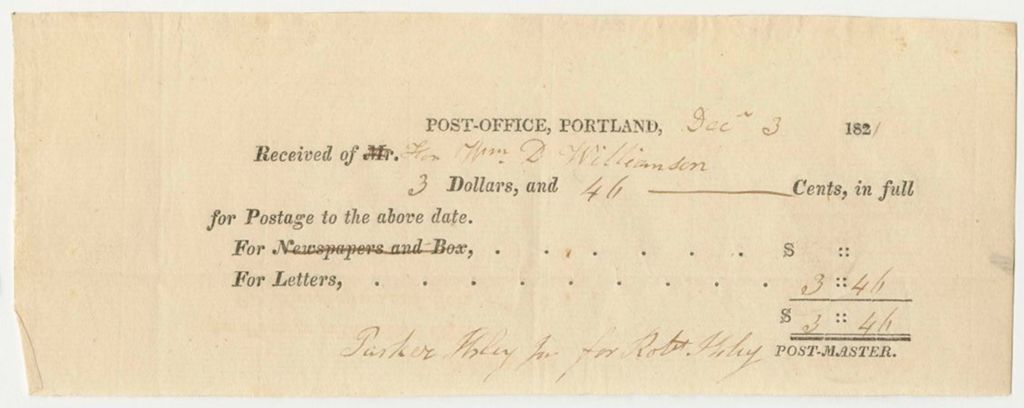 POST-OFFICE, PORTLAND, Decr 3 1821
Received of Mr. Hon Wm. D Williamson
3 Dollars, and 46 Cents, in full
for Postage to the above date.
For Newspapers and Box, . . . . . . . $ ::
For Letters, . . . . . . . . . . 3 :: 46
$ 3 :: 46
Parker Ilsley Jr for Robt Ilsley POST-MASTER.